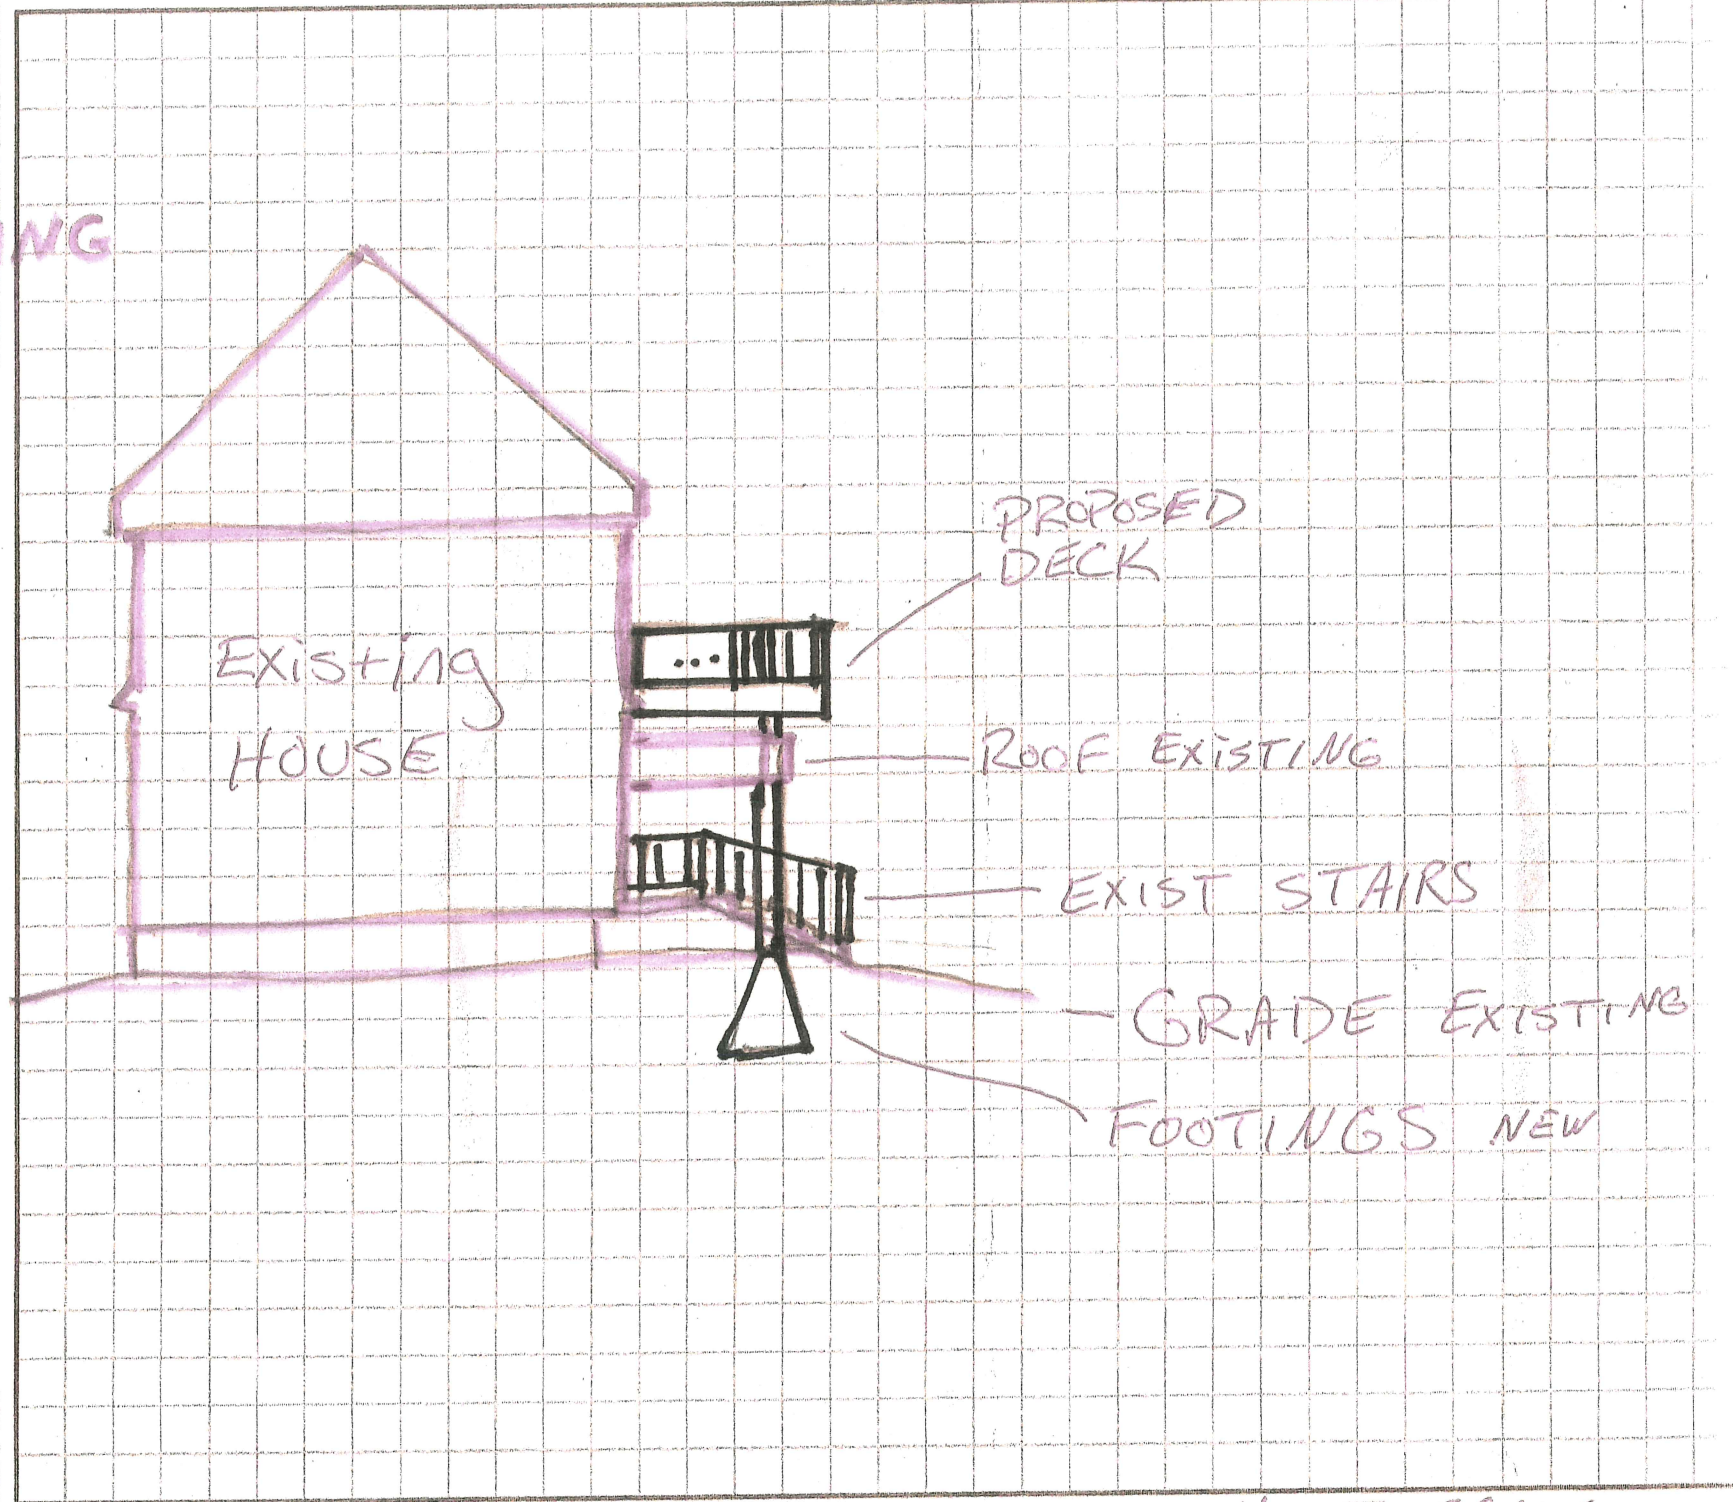 NG
PROPOSED
DECK
Existing
HOUSE
ROOF EXISTING
EXIST STAIRS
GRADE EXISTING
FOOTINGS NEW